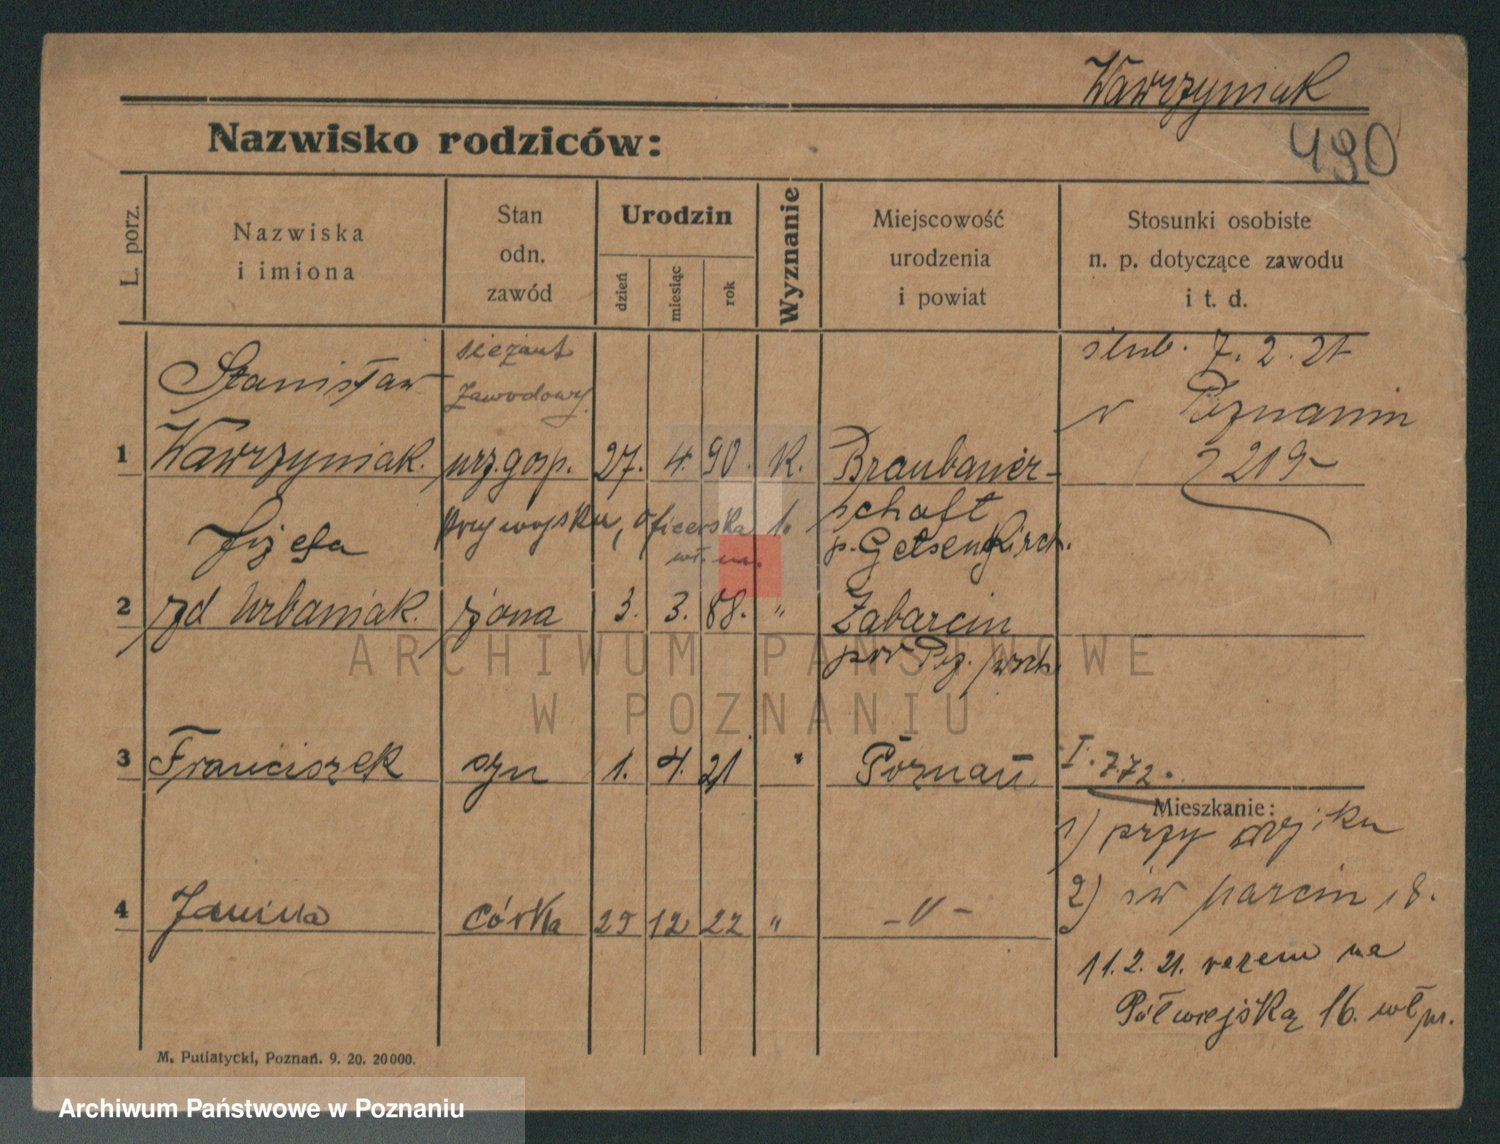 Wawrzyniak
490
Nazwisko rodziców:
L. porz.
Nazwiska
i imiona
Stan
odn.
zawód
Urodzin
dzień
miesiąc
rok
Wyznanie
Miejscowość
urodzenia
i powiat
Stosunki osobiste
n. p. dotyczące zawodu
i t. d.
Stanisław
sierżant
zawodowy
ślub. 7. 2. 21
w Poznaniu
1 Wawrzyniak. urz. gosp. 27. 4. 90. k. Braubauer-
219
schaft
przy wojsku, oficerska 1.
p. Gelsenkirch.
Józefa
2 zd Urbaniak. żona 3. 3. 88. " Żabarcin
pow Poz. wsch.
3 Franciszek syn 1. 4. 21 " Poznań
I. 772.
Mieszkanie:
1) przy wojsku
2) św Marcin 18.
4 Janina córka 25 12 22 " -"-
11. 2. 21. razem na
Półwiejską 16.
M. Putiatycki, Poznań. 9. 20. 20000.
ARCHIWUM PAŃSTWOWE
W POZNANIU
Archiwum Państwowe w Poznaniu